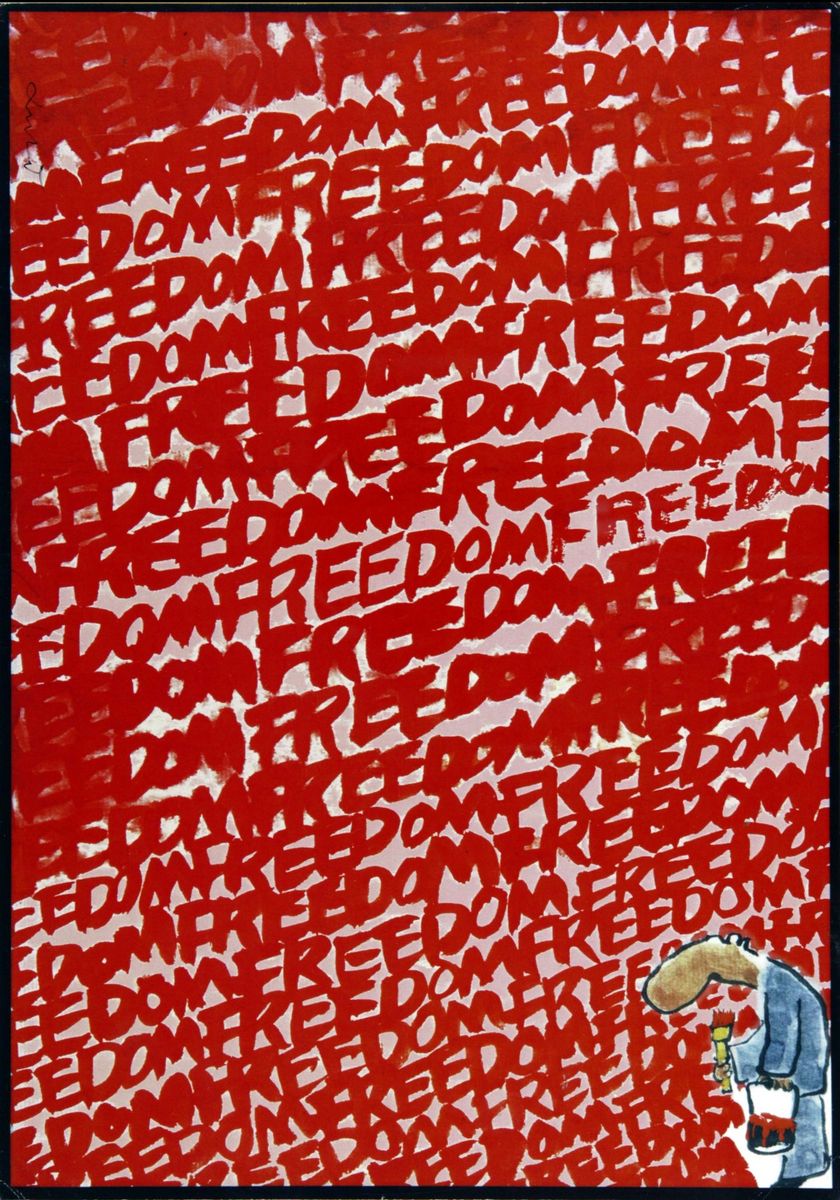 FREEDOM FREEDOM
FREEDOM FREEDOM
M FREEDOM FREEDOM
EEDOM FREEDOM FREEDO
FREEDOM FREEDOM FREE
EEDOM FREEDOM FREED
M FREEDOM FREEDOM
EEDOM FREEDOM FREE
FREEDOM FREEDOM F
EDOM FREEDOM FREEDOM
EEDOM FREEDOM FREED
EEDOM FREEDOM FREED
EEDOM FREEDOM FREEDOM
EEDOM FREEDOM FREEDOM
EDOM FREEDOM FREEDOM
EEDOM FREEDOM FREEDO
EEDOM FREEDOM FREEDOM
EEDOM FREEDOM FREEDOM
EDOM FREEDOM FREEDOM
FREEDOM FREEDOM
FREEDOM